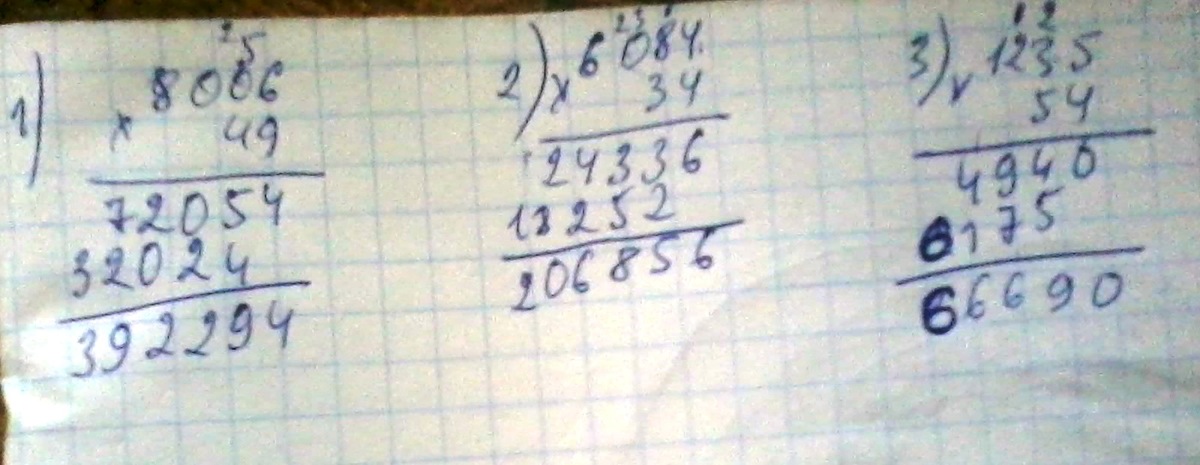 1)
2 5
8006
× 49
72054
32024
392294
2)
2 3 1
6084
× 34
24336
18252
206856
3)
1 2
1235
× 54
4940
6175
66690